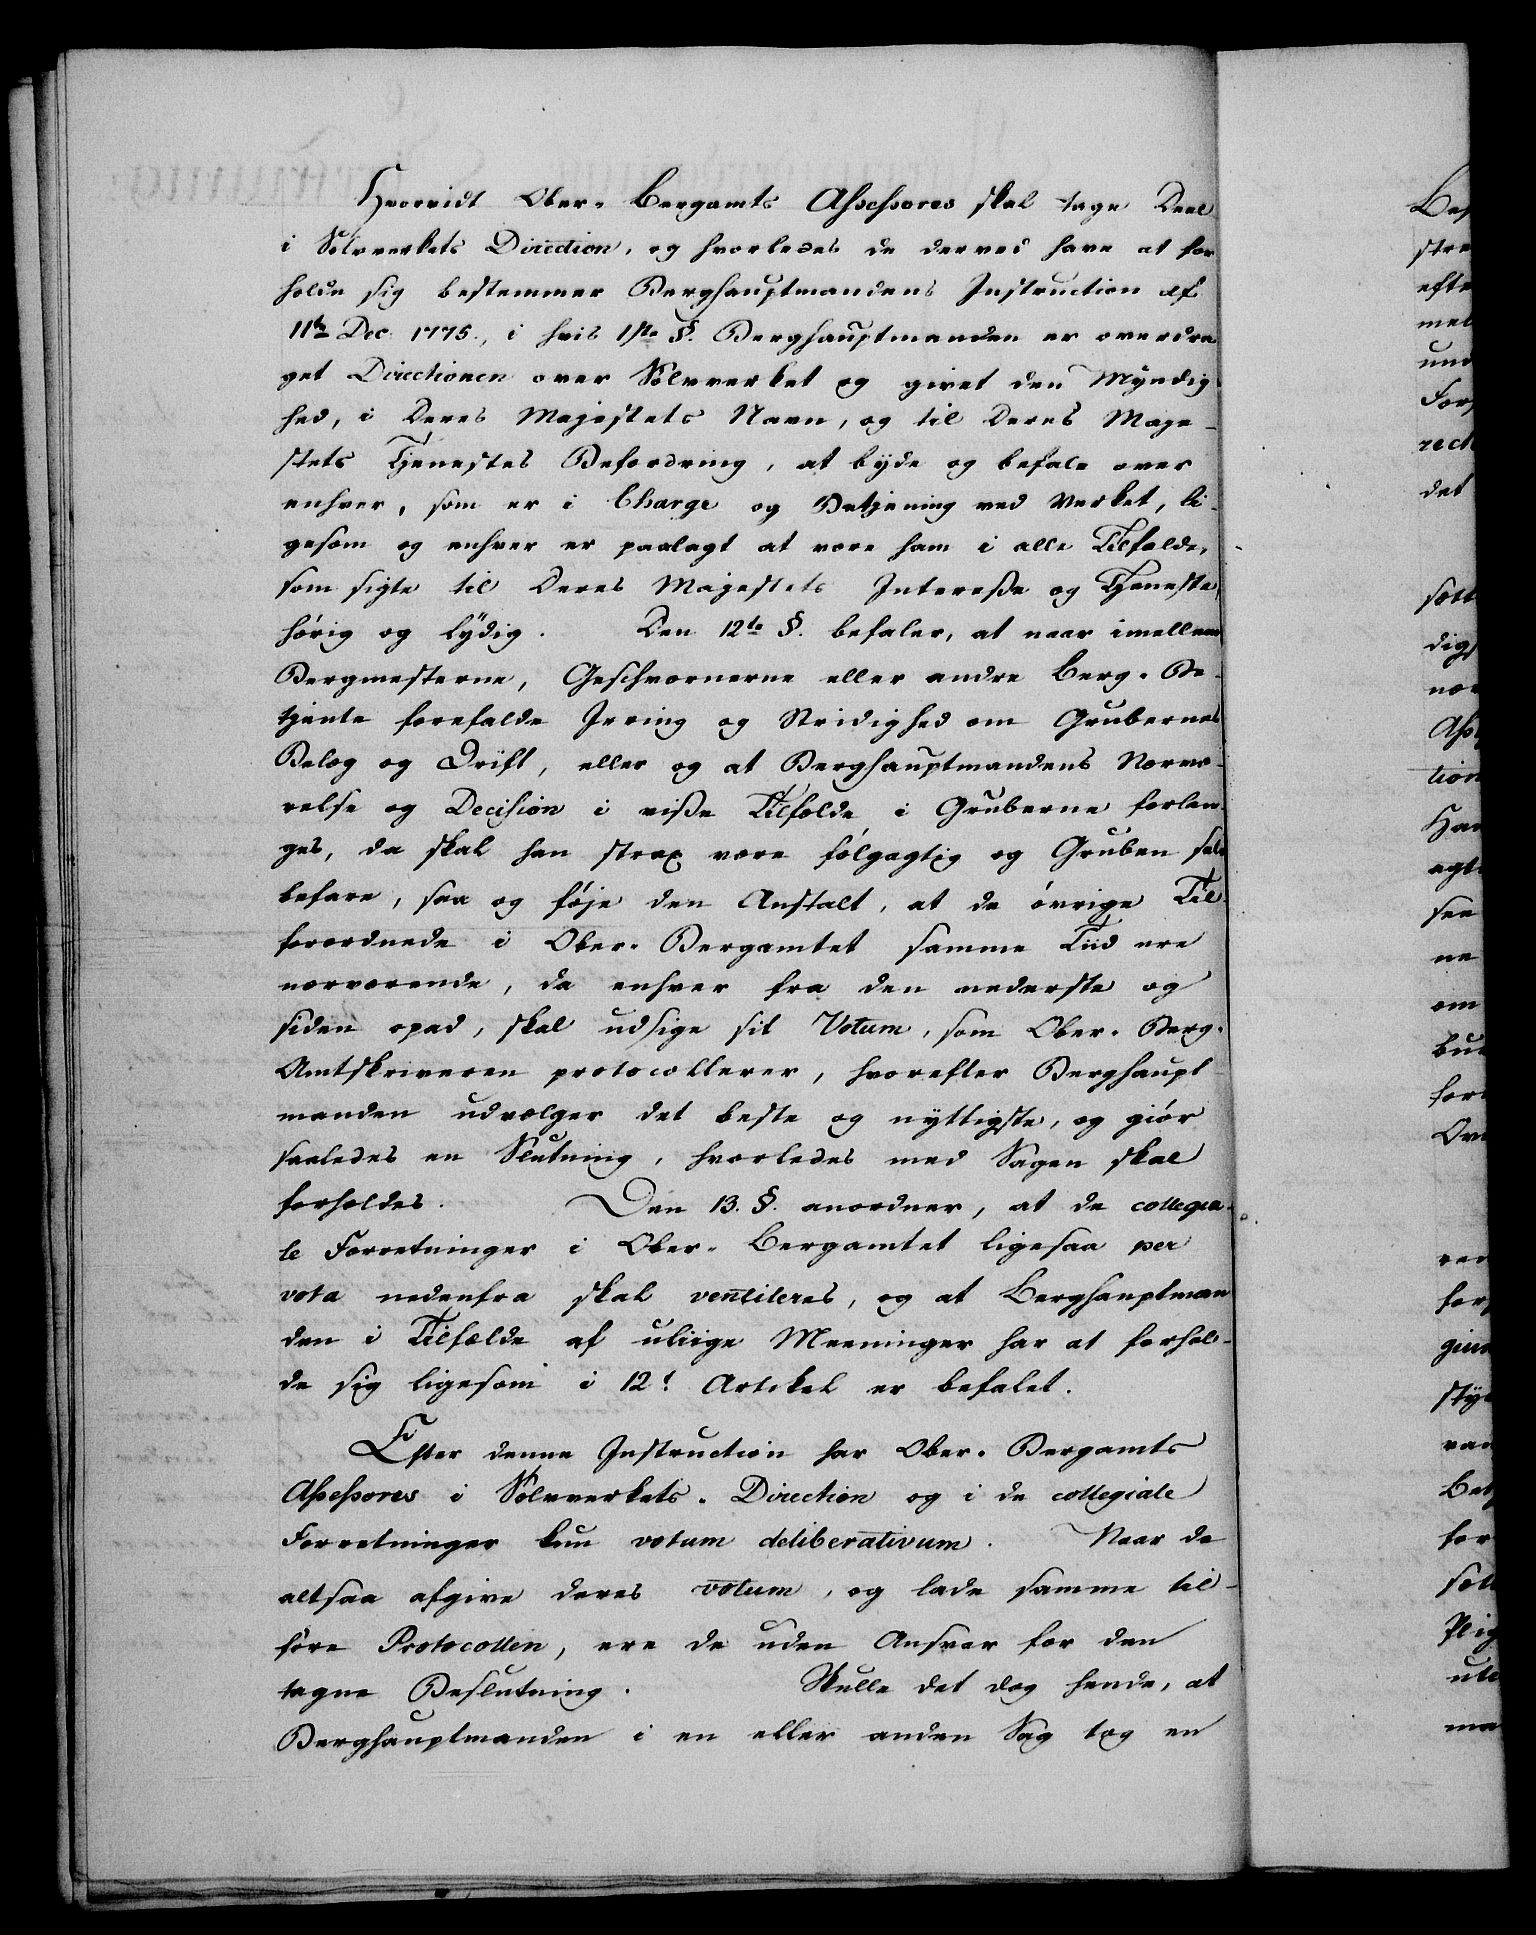 Hvorvidt Ober-Bergamts Assessores skal tage Deel
i Sølvverkets Direction, og hvorledes de derved have at for
holde sig bestemmer Berghauptmandens Instruction af
11te Dec 1775., i hvis 1ste §. Berghauptmanden er overdra
get Directionen over Sølvverket og givet den Myndig
hed, i Deres Majestets Navn, og til Deres Maje-
stets Tjenestes Befordring, at byde og befale over
enhver, som er i Charge og Betjening ved Verket, li-
gesom og enhver er paalagt at være ham i alle Tilfælde,
som sigte til Deres Majestets Interesse og Tjeneste,
hørig og lydig. Den 12te §. befaler, at naar imellem
Bergmesterne, Geschvornerne eller andre Berg-Be-
tjente forefalde Irring og Stridighed om Grubernes
Belæg og Drift, eller og at Berghauptmandens Nærvæ-
relse og Decision i visse Tilfælde i Gruberne forlan-
ges, da skal han strax være følgagtig og Gruben selv
befare, saa og føje den Anstalt, at de øvrige Til
forordnede i Ober-Bergamtet samme Tiid ere
nærværende, da enhver fra den nederste og
siden opad, skal udsige sit Votum, som Ober-Berg-
Amtskriveren protocollerer, hvorefter Berghaupt
manden udvælger det beste og nyttigste, og giør
saaledes en Slutning, hvorledes med Sagen skal
forholdes. Den 13. §. anordner, at de collegia-
le Forretninger i Ober-Bergamtet ligesaa per
vota nedenfra skal ventileres, og at Berghauptman
den i Tilfælde af uliige Meeninger har at forhol-
de sig ligesom i 12t Artikel er befalet.
Efter denne Instruction har Ober-Bergamts
Assessores i Sølvverkets-Direction og i de collegiale
Forretninger kun votum deliberativum. Naar de
altsaa afgive deres votum, og lade samme til-
føre Protocollen, ere de uden Ansvar for den
tagne Beslutning. Skulle det dog hende, at
Berghauptmanden i en eller anden Sag tog en